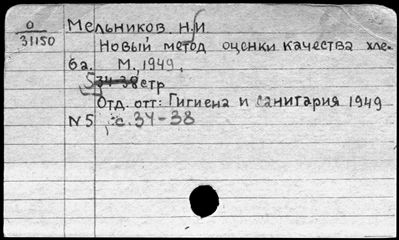 О
31150
Мельников. Н.И
Новый метод оценки качества хле-
ба. М., 1949,
5 34-38 стр
Отд. отт: Гигиена и санитария 1949
N5 с. 34-38